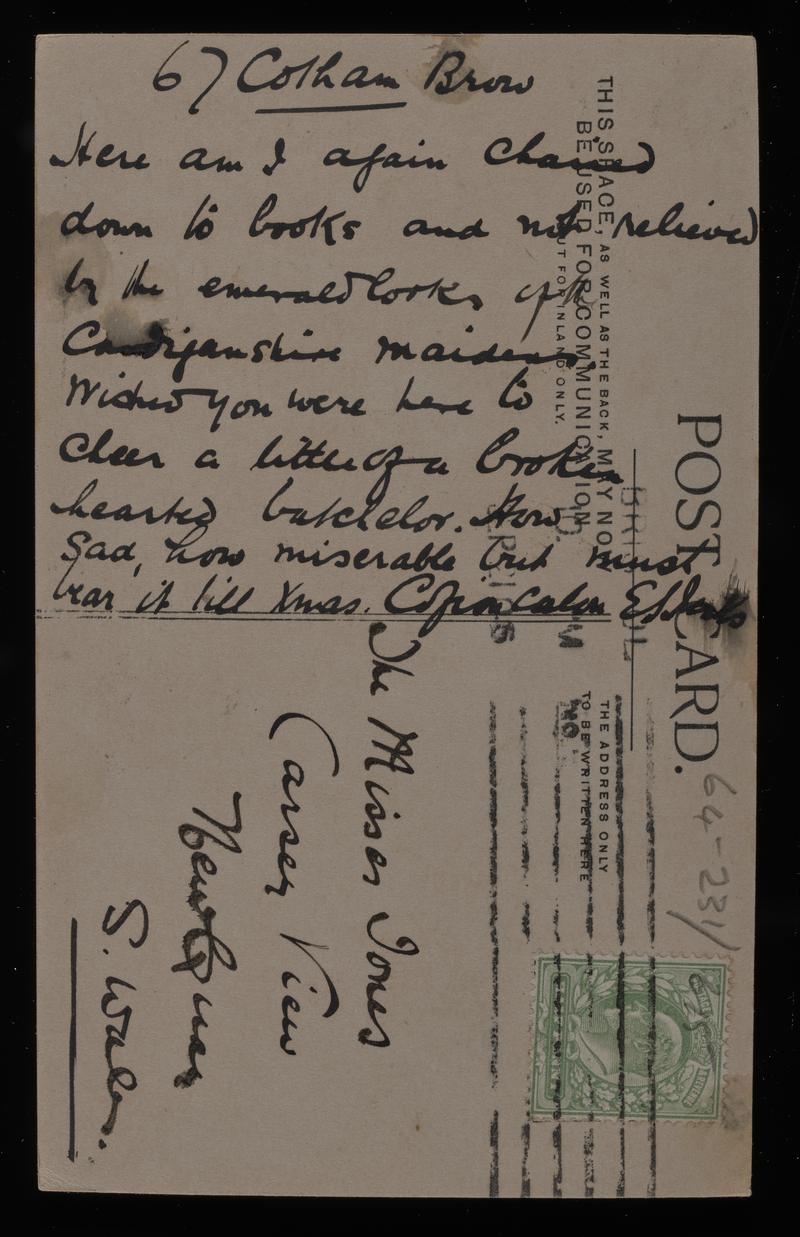 67 Cotham Brow
Here am I again chained
down to books and not relieved
by the emerald looks of the
Cardiganshire maidens.
Wished you were here to
cheer a little of a broken
hearted batchelor. How
sad, how miserable but must
bear it till Xmas. Cofion calon
POST CARD.
THIS SPACE, AS WELL AS THE BACK, MAY NOW
BE USED FOR COMMUNICATION
BUT FOR INLAND ONLY.
THE ADDRESS ONLY
TO BE WRITTEN HERE
BRISTOL
The Misses Jones
Carsey View
New Quay
S. Wales.
64-231/